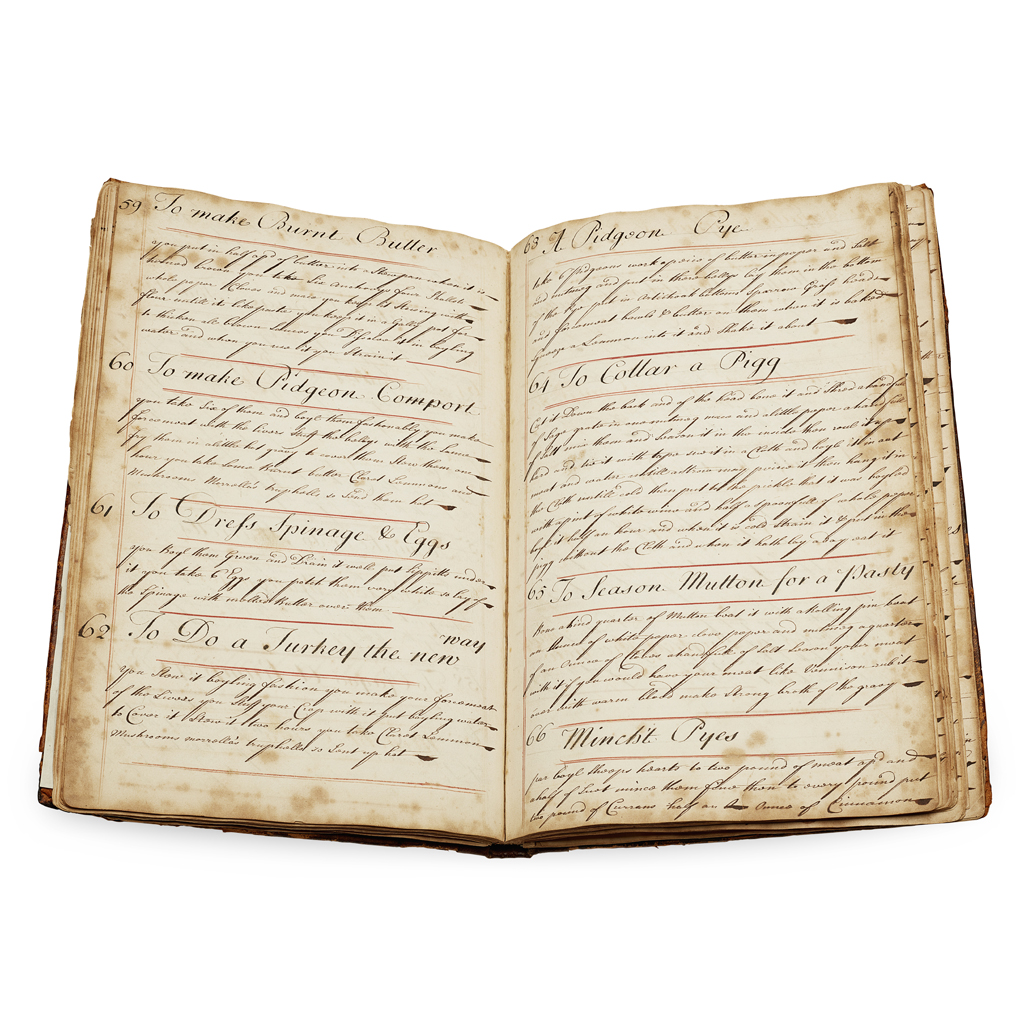 59 To make Burnt Butter
you put in half a pd of butter into a Stewpan when it is
turned brown you take Six Anchovys four Shallots
whole paper Cloves and mace you keep it Stiring with
flour untill it is like paste you keep it in a Gally pot for
to thicken & brown Sauces you Disolve it in boyling
water and when you use it you Strain it
60 To make Pidgeon Comport
you take Six of them and boyl them fashonably you make
forcemeat with the livers Stuf the bellys with the Same
fry them in a little but gravy to cover them Stew them one
hour you take Some burnt butter Claret Lemmon and
Mushrooms Morrella's trupholls so Send them hot
61 To Dress Spinage & Eggs
you Boyl them Green and Drain it well put Sippitts under
it you take 6 Eggs you potch them very white so lay off
the Spinage with melted Butter over them
62 To Do a Turkey the new way
you Stew it boyling fashion you make your forcemeat
of the Livers you Stuf your Crop with it put boyling water
to Cover it Stew it two hours you take Claret Lemmon
Mushrooms morrella's trupholls so Sent up hot
63 A Pidgeon Pye
take 6 Pidgeons work a peice of butter in peper and Salt
and nutmeg and put in there bellys lay them in the bottom
of the Pye put in Artichoak bottoms Sparrow Grass heads
and forcemeat bawls & butter on them when it is baked
Squese a Lemmon into it and Shake it about
64 To Collar a Pigg
Cut it Down the back and of the head bone it and Shred a handfull
of Sage grate in one nutmeg mace and a little peper a handfull
of Salt mix them and Season it in the inside then roul it up
hard and tie it with tape sow it in a Cloth and boyl it in wort
and water till a Straw may peirce it then hang it in
the Cloth untill cold then put to the pickle that it was boyled
with a pint of white wine and half a spoonfull of whole peper
boyl it half an hour and when it is cold Strain it & put in the
pigg without the Cloth and when it hath lay a Day eat it
65 To Season Mutton for a Pasty
Bone a hind quarter of Mutton beat it with a Rolling pin beat
an Ounce of white paper clove peper and nutmeg a quarter
of an Ounce of Cloves a handfull of Salt Season your meat
with it if you would have your meat like Vennison rub it
over with warm blood make Strong broth of the gravy
66 Minch't Pyes
par boyl Sheeps hearts to two pound of meat a pd and
a half of Suet mince them fine then to every pound put
two pound of Currans half an Ounce of Cinnamon